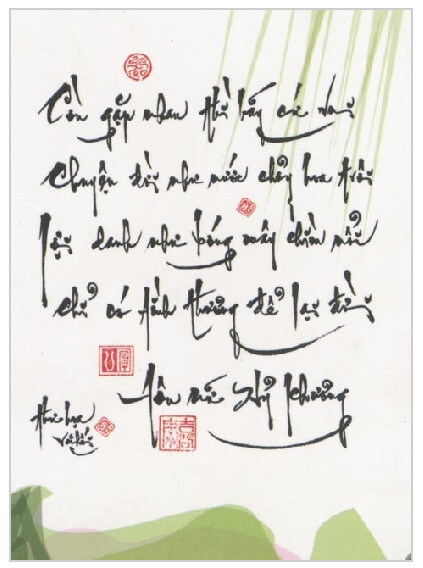 Còn gặp nhau thì hãy cứ vui
Chuyện đời như nước chảy hoa trôi
Lợi danh như bóng mây chìm nổi
Chỉ có tình thương để lại đời
Tôn nữ Hỷ Khương
Thư họa
Vũ Hối